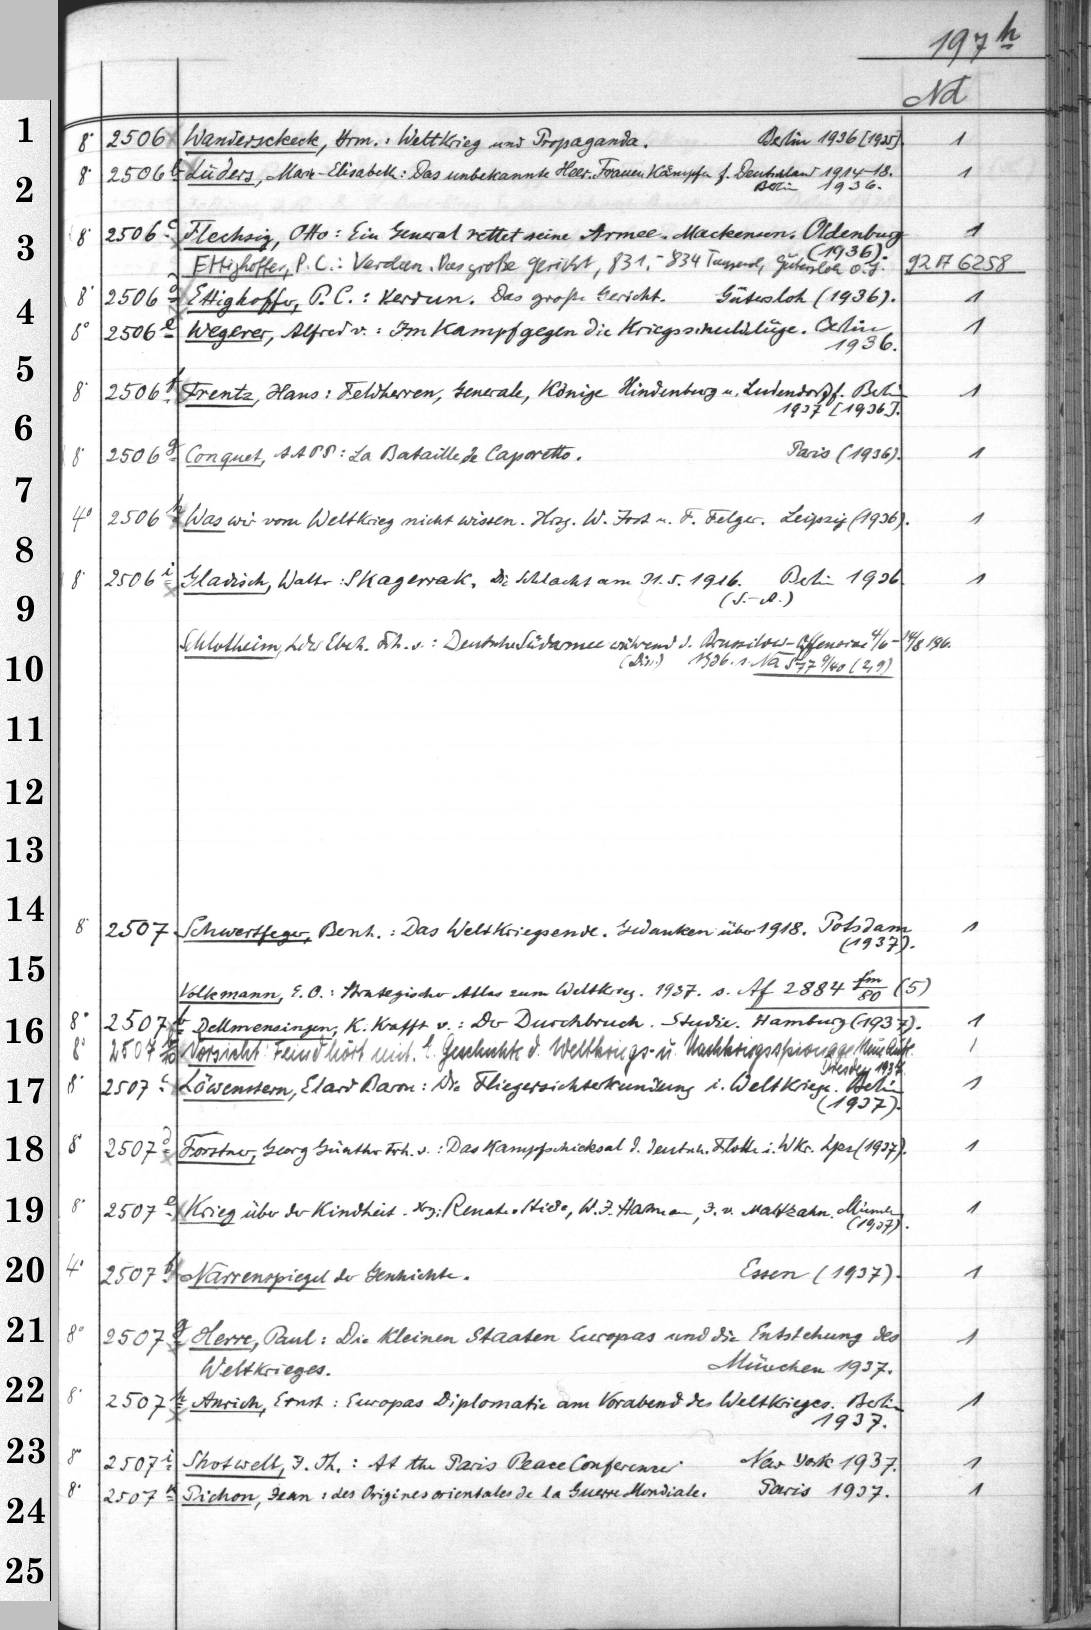 197 h
Nd
1
8° 2506 Wanderscheck, Hrm.: Weltkrieg und Propaganda. Berlin 1936 [1935]. 1
2
8° 2506 b Lüders, Marie-Elisabeth: Das unbekannte Heer. Frauen kämpfen f. Deutschland 1914-18. 1
Berlin 1936.
3
8° 2506 c Flechsig, Otto: Ein General rettet seine Armee. Mackensen. Oldenburg 1
(1936).
Ettighoffer, P. C.: Verdun. Das große Gericht, 831.-834 Tausend, Gütersloh o. J. 92 A 6258
4
8° 2506 d Ettighoffer, P. C.: Verdun. Das große Gericht. Gütersloh (1936). 1
8° 2506 e Wegerer, Alfred v.: Im Kampf gegen die Kriegsschuldlüge. Berlin 1
1936.
5
8° 2506 f Frentz, Hans: Feldherren, Generale, Könige Hindenburg u. Ludendorff. Berlin 1
1937 [1936].
6
8° 2506 g Conquet, : La Bataille de Caporetto. Paris (1936). 1
7
4° 2506 h Was wir vom Weltkrieg nicht wissen. Hrsg. W. Jost u. F. Felger. Leipzig (1936). 1
8
8° 2506 i Gladisch, Walter: Skagerrak. Die Schlacht am 31.5.1916. Berlin 1936. 1
9
(S.-A.)
Schlotheim, Ldw Eberh. Frh. v.: Deutsche Südarmee während d. Brussilow-Offensive 4/6-14/8 1916.
10
(Diss.) 1936. s. Na 577 9/40 (2,9)
11
12
13
14
8° 2507 Schwertfeger, Bernh.: Das Weltkriegsende. Gedanken über 1918. Potsdam 1
(1937).
15
Volkmann, E. O.: Strategischer Atlas zum Weltkrieg. 1937. s. Af 2884 fm/80 (5)
16
8° 2507 b Dellmensingen, K. Krafft v.: Der Durchbruch. Studie. Hamburg (1937). 1
8° 2507 Vorsicht! Feind hört mit. E. Geschichte d. Weltkriegs- u. Nachkriegsspionage Neue Aufl. 1
Dresden 1937.
17
8° 2507 c Löwenstern, Elard Baron: Die Fliegersichterkundung i. Weltkriege. Berlin 1
(1937).
18
8° 2507 d Forstner, Georg Günther Frh. v.: Das Kampfschicksal d. deutsch. Flotte i. WKr. Lpz (1937). 1
19
8° 2507 e Krieg über der Kindheit. Hrg: Renate Stieda, W. J. Hartmann, J. v. Maltzahn. München 1
(1937).
20
4° 2507 f Narrenspiegel der Geschichte. Essen (1937). 1
21
8° 2507 g Herre, Paul: Die kleinen Staaten Europas und die Entstehung des 1
Weltkrieges. München 1937.
22
8° 2507 h Anrich, Ernst: Europas Diplomatie am Vorabend des Weltkrieges. Berlin 1
1937.
23
8° 2507 i Shotwell, J. Th.: At the Paris Peace Conference New York 1937. 1
8° 2507 k Pichon, Jean: des Origines orientales de la Guerre Mondiale. Paris 1937. 1
24
25